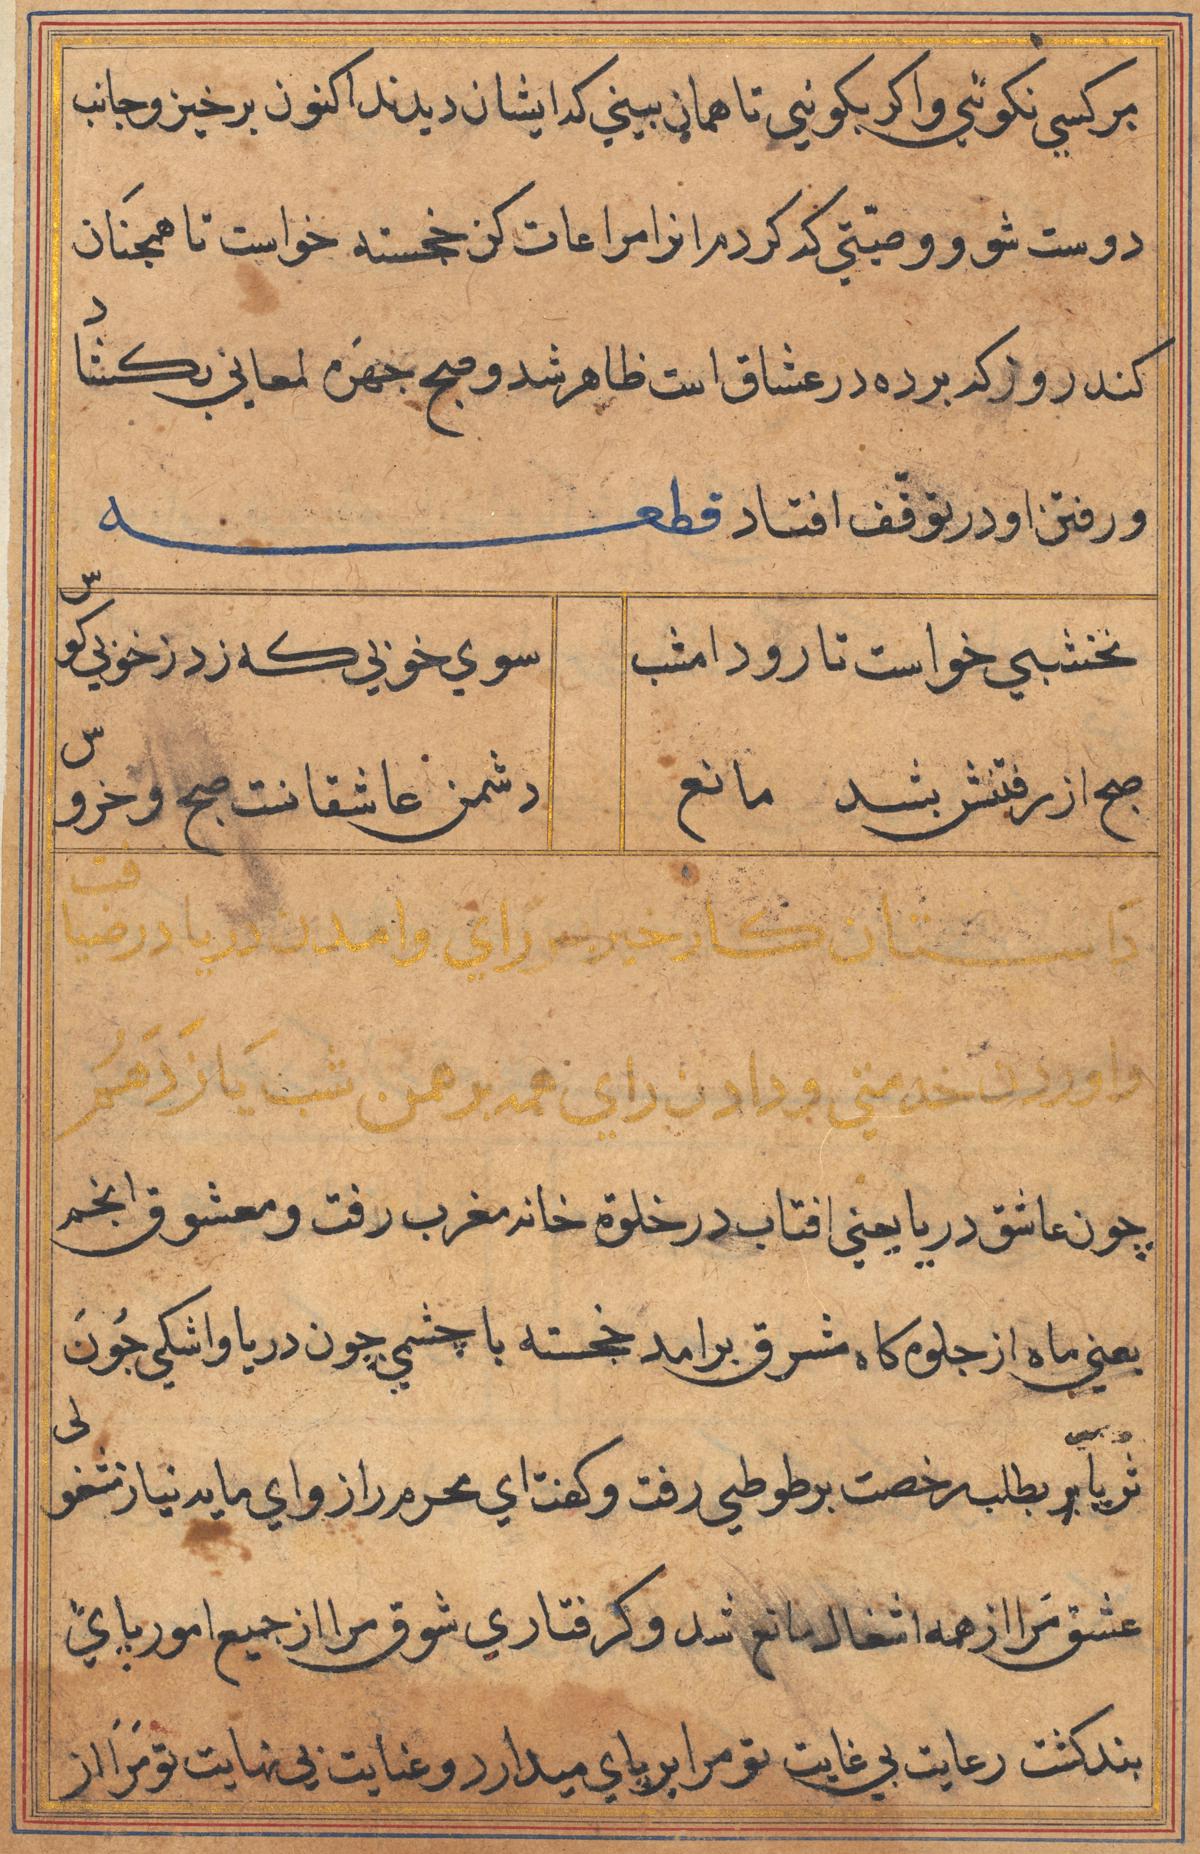 بر کسی نکوئی واکر بکوئی تا همان ببینی که ایشان دیدند اکنون برخیز و جانب
دوست شو و وصیّتی که کردم انرا مراعات کن خجسته خواست تا همجنان
کند روز که برده در عشاق است ظاهر شد و صبح جهره لمعانی بکشاد
و رفتن او در توقّف افتاد قطعه
نخشبی خواست تا رود امشب سوی خوبی که زد ز خوبی کوس
صبح از رفتنش بشد مانع دشمن عاشقانت صبح و خروس
داستان کار خیر رای وامدن دریا در ضیافت
واوردن خدمتی و دادن رای همه برهمن شب یازدهم
چون عاشق دریا یعنی افتاب در خلوة خانه مغرب رفت و معشوق انجم
یعنی ماه از جلوه کاه مشرق برامد خجسته با چشمی چون دریا واشکی جون
ثریا بطلب رخصت بر طوطی رفت و کفت ای محرم راز وای مایه نیاز شغولی
عشق مرا از همه اشغال مانع شد و کرفتاری شوق مرا از جمیع امور پای
بند کشت رعایت بی غایت تو مرا بر پای میدارد و عنایت بی نهایت تو مرا از